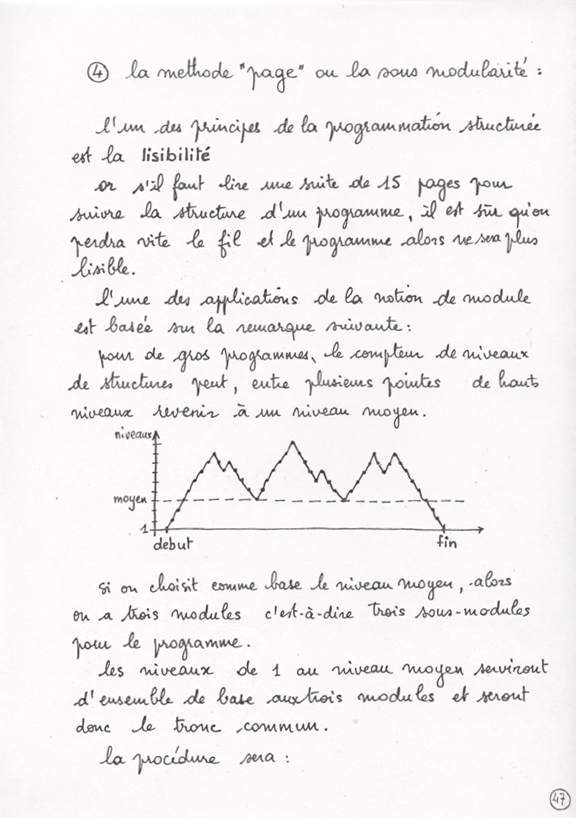 ④ la methode "page" ou la sous modularité :
l'un des principes de la programmation structurée
est la lisibilité
or s'il faut lire une suite de 15 pages pour
suivre la structure d'un programme, il est sûr qu'on
perdra vite le fil et le programme alors ne sera plus
lisible.
l'une des applications de la notion de module
est basée sur la remarque suivante :
pour de gros programmes, le compteur de niveaux
de structures peut, entre plusieurs pointes de hauts
niveaux revenir à un niveau moyen.
niveaux
moyen
1
debut fin
si on choisit comme base le niveau moyen, alors
on a trois modules c'est-à-dire trois sous-modules
pour le programme.
les niveaux de 1 au niveau moyen serviront
d'ensemble de base aux trois modules et seront
donc le tronc commun.
la procédure sera :
47